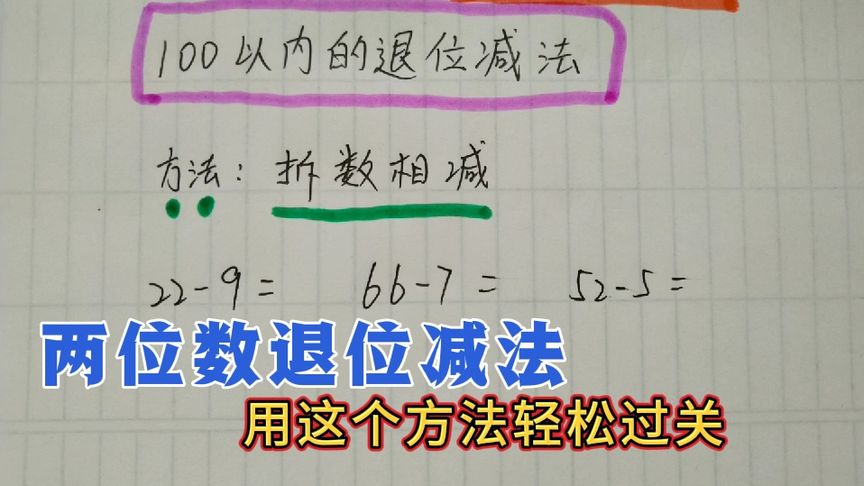 100以内的退位减法
方法：拆数相减
22-9= 66-7= 52-5=
两位数退位减法
用这个方法轻松过关